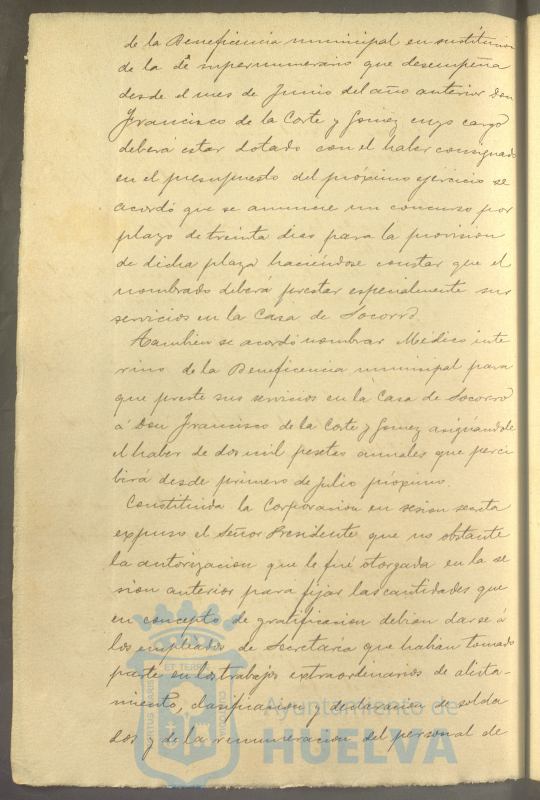 de la Beneficencia municipal en sustitucion
de la de supernumerario que desempeña
desde el mes de Junio del año anterior Don
Francisco de la Corte y Gomez cuyo cargo
deberá estar dotado con el haber consignado
en el presupuesto del próximo ejercicio se
acordó que se anuncie un concurso por
plazo de treinta dias para la provision
de dicha plaza haciéndose constar que el
nombrado deberá prestar especialmente sus
servicios en la Casa de Socorro.
Tambien se acordó nombrar Médico inte
rino de la Beneficencia municipal para
que preste sus servicios en la Casa de Socorro
á Don Francisco de la Corte y Gomez asignándole
el haber de dos mil pesetas anuales que perci
birá desde primero de Julio próximo.
Constituida la Corporacion en sesion secreta
expuso el Señor Presidente que no obstante
la autorizacion que le fué otorgada en la se
sion anterior para fijar las cantidades que
en concepto de gratificacion debian darse á
los empleados de Secretaría que habian tomado
parte en los trabajos extraordinarios de alista-
miento, clasificacion y declaracion de solda
dos y de la remuneracion del personal de
ET TERRÆ
Ayuntamiento de
HUELVA